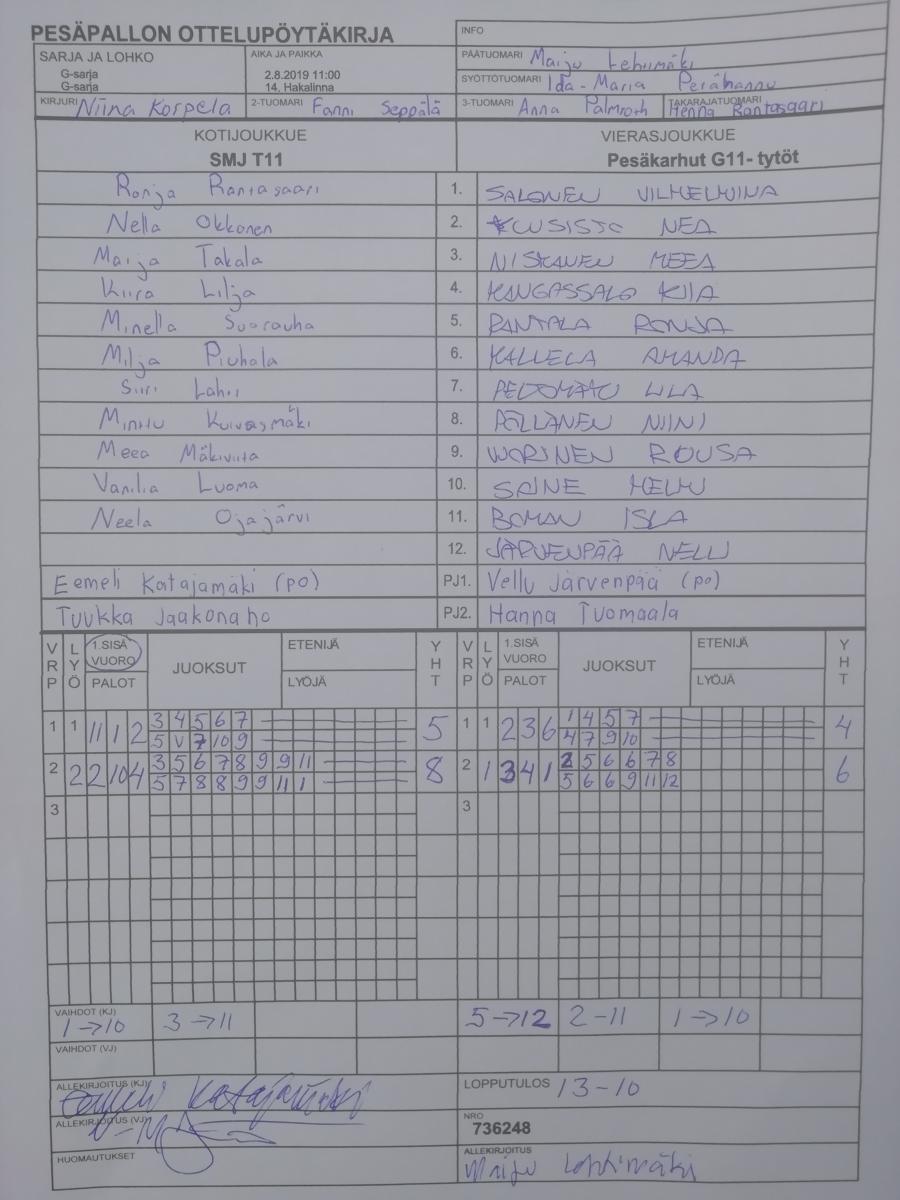 PESÄPALLON OTTELUPÖYTÄKIRJA
INFO
SARJA JA LOHKO
G-sarja
G-sarja
AIKA JA PAIKKA
2.8.2019 11:00
14, Hakalinna
PÄÄTUOMARI Maiju Lehtimäki
SYÖTTÖTUOMARI Ida-Maria Perähannu
KIRJURI Niina Korpela 2-TUOMARI Fanni Seppälä 3-TUOMARI Anna Palmroth TAKARAJATUOMARI Henna Rantasaari
KOTIJOUKKUE VIERASJOUKKUE
SMJ T11 Pesäkarhut G11- tytöt
Ronja Rantasaari 1. SALONEN VILHELMIINA
Nella Okkonen 2. KUUSISTO NEA
Marja Takala 3. NISKANEN MEEA
Kiira Lilja 4. KANGASSALO KIIA
Minella Suorauha 5. RANTALA RONJA
Milja Piuhola 6. KALLELA AMANDA
Siiri Lahti 7. LILA
Minttu Kuivasmäki 8. PÖLLÄNEN NIINI
Meea Mäkiviita 9. WORINEN ROUSA
Vanilia Luoma 10. SAINE HELMI
Neela Ojajärvi 11. BOMAN ISLA
12. JÄRVENPÄÄ NELLI
Eemeli Katajamäki (po) PJ1. Vellu Järvenpää (po)
Tuukka Jaakonaho PJ2. Hanna Tuomaala
VRP LYÖ 1.SISÄ VUORO PALOT JUOKSUT ETENIJÄ LYÖJÄ YHT VRP LYÖ 1.SISÄ VUORO PALOT JUOKSUT ETENIJÄ LYÖJÄ YHT
1 1 11 1 2 3 4 5 6 7 5 1 1 2 3 6 1 4 5 7 4
5 V 7 10 9 4 7 9 10
2 2 2 10 4 3 5 6 7 8 9 9 11 8 2 1 3 4 1 2 5 6 6 7 8 6
5 7 8 8 9 9 11 1 5 6 6 9 11 12
3 3
VAIHDOT (KJ)
1→10 3→11 5→12 2-11 1→10
VAIHDOT (VJ)
ALLEKIRJOITUS (KJ) Eemeli Katajamäki LOPPUTULOS 13-10
ALLEKIRJOITUS (VJ)
NRO
736248
HUOMAUTUKSET
ALLEKIRJOITUS
Maiju Lehtimäki